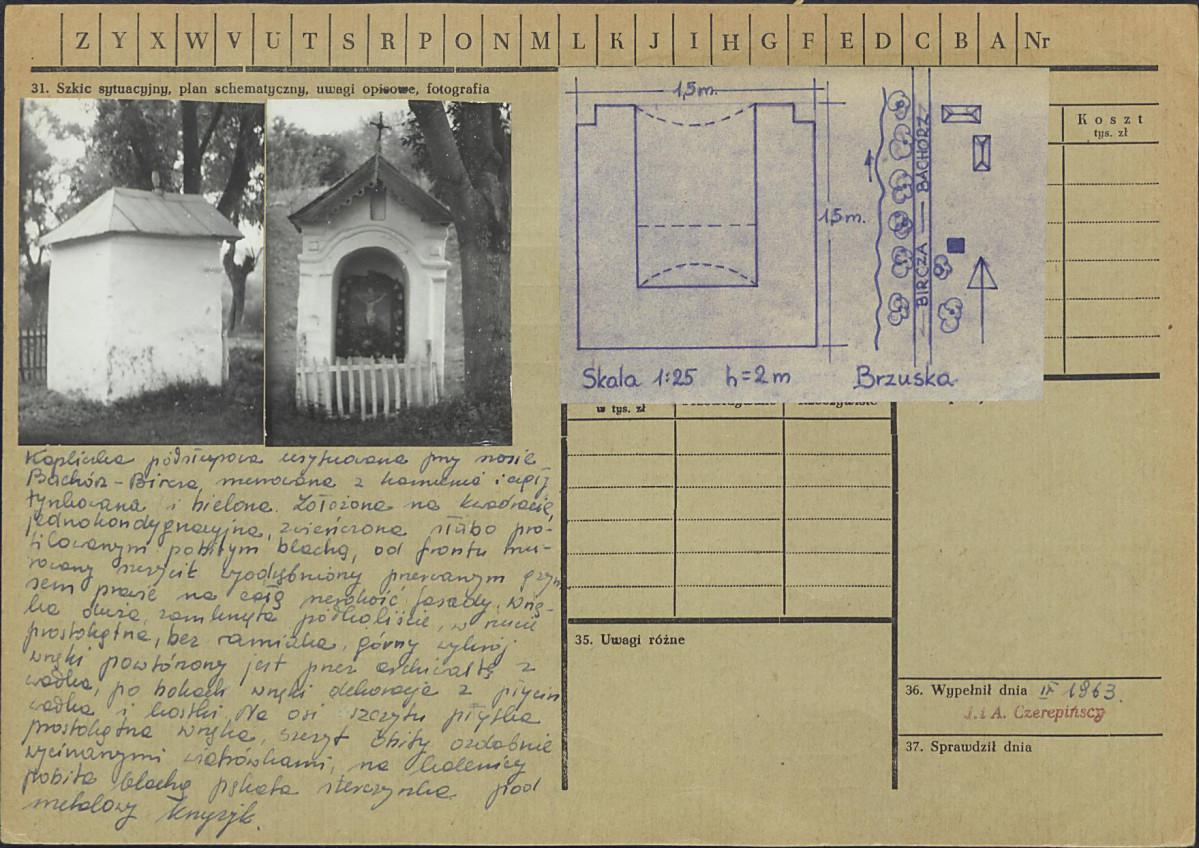 Z Y X W V U T S R P O N M L K J I H G F E D C B A Nr
31. Szkic sytuacyjny, plan schematyczny, uwagi opisowe, fotografia
1,5 m.
1,5 m.
BIRCZA — BACHÓRZ
Skala 1:25 h=2 m
Brzuska
Koszt
tys. zł
w tys. zł
Kapliczka usytuowana przy szosie
Bachórz-Bircza, murowana z kamienia i cegły
tynkowana i bielona. Założona na kwadracie,
jednokondygnacyjna, zwieńczona słabo pro-
filowanym pobitym blachą, od frontu mu-
rowany szczyt wyodrębniony przerwanym gzym
sem prawie na całą szerokość fasady. Wnę-
ka duża, zamknięta półkoliście, w rzucie
prostokątna, bez górny wykrój
wnęki powtórzony jest przez archiwoltę z
wałka, po bokach wnęki dekoracja z płycin
wałka i kostki. Na osi szczytu płytka
prostokątna wnęka, szczyt obity ozdobnie
wycinanymi wiatrówkami, na kalenicy
pobita blachą pękata sterczynka pod
metalowy krzyżyk.
35. Uwagi różne
36. Wypełnił dnia IX 1963.
J. i A. Czerepińscy
37. Sprawdził dnia